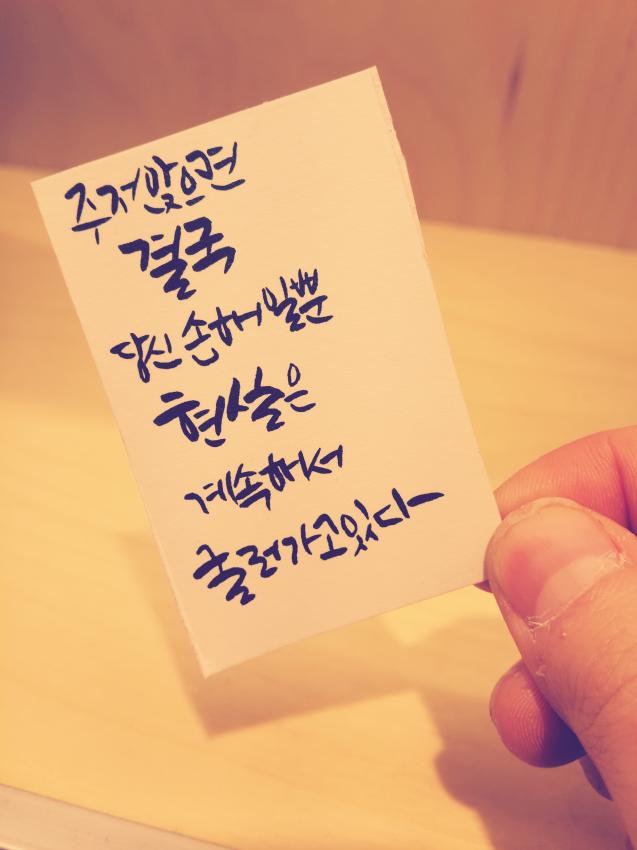 주저앉으면
결국
당신 손해일뿐
현실은
계속해서
굴러가고있다